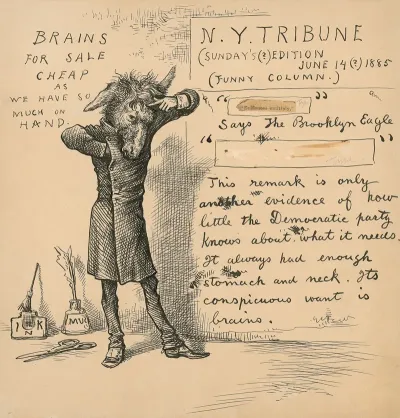 BRAINS
FOR SALE
CHEAP
AS
WE HAVE SO
MUCH ON
HAND.
INK
MU
N.Y. TRIBUNE
(SUNDAY'S(?) EDITION
JUNE 14(?) 1885
(FUNNY COLUMN.)
" "
Says The Brooklyn Eagle
" "
This remark is only
another evidence of how
little the Democratic party
knows about what it needs.
It always had enough
stomach and neck. Its
conspicuous want is
brains.